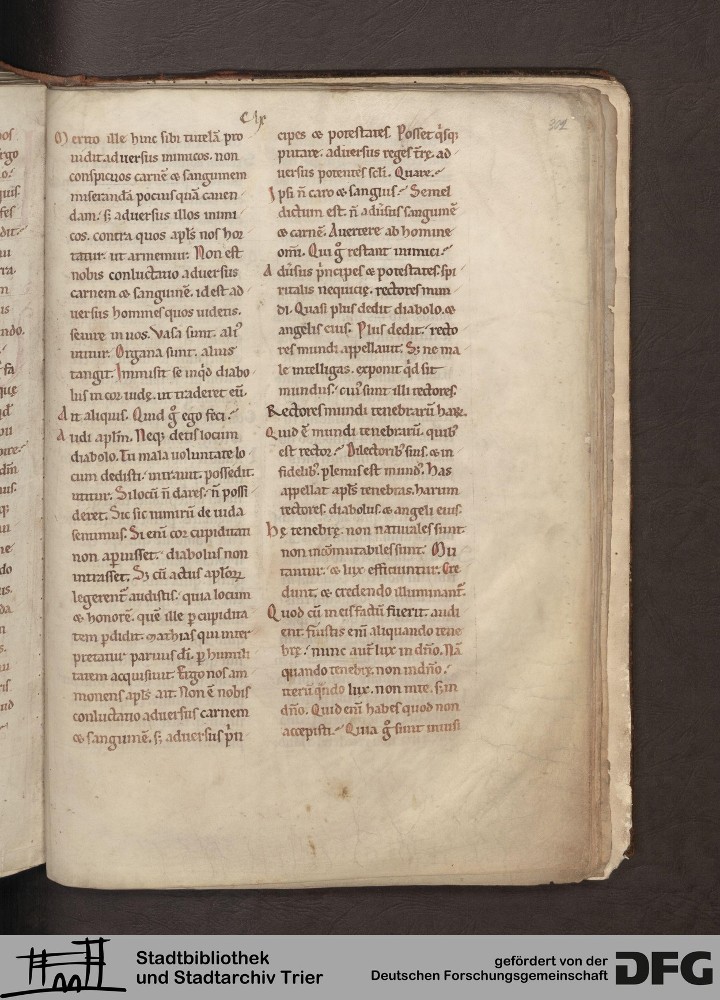 Merito ille hinc sibi tutelā pro
uidit. aduersus inimicos. non
conspicuos carnē & sanguinem
miserandā potius quā cauen
dam. s; aduersus illos inimi
cos. contra quos apl̄s nos hor
tatur. ut armemur. Non est
nobis conluctatio. aduersus
carnem & sanguinē. id est ad
uersus homines quos uidetis.
seuire in uos. Vasa sunt. ali'
utitur. Organa sunt. alius
tangit. Immisit se inq̄d diabo
lus in cor iudę. ut traderet eū.
Ait aliquis. Quid g̊ ego feci?
Audi apl̄m. Neq; detis locum
diabolo. Tu mala uoluntate lo
cum dedisti. intrauit. possedit.
utitur. Si locū n̄ dares. n̄ possi
deret. Sic sic
senumus. Si enī cor cupiditati
non apuisset. diabolus non
intrasset. Sz cū actus apl̄oꝝ
legerent̄ audistis. quia locum
& honorē. quē ille p cupidita
tem pdidit. mathias qui inter
pretatur paruus dī. p humili
tatem acquisiuit. Ergo nos am
monens apl̄s ait. Non ē nobis
conluctatio aduersus carnem
& sanguinē. s; aduersus p̄n
cipes & potestates. Posset q̄sq;
putare. aduersus reges t̄rę. ad
uersus potentes sc̄li. Quare.
Ipsi n̄ caro & sanguis? Semel
dictum est. n̄ adūsus sanguinē
& carnē. Auertere ab homine
om̄i. Qui g̊ restant inimici?
Adūsus p̄ncipes & potestates spi
ritalis nequicię. rectores mun
di. Quasi plus dedit diabolo. &
angelis eius. Plus dedit. recto
res mundi appellauit. Sz ne ma
le intelligas. exponit q̄d sit
mundus. cui' sunt illi rectores.
Rectores mundi tenebrarū harū.
Quid ē mundi tenebrarū. quib'
est rector? Dilectorib' suis. & in
fidelib'. plenus est mund'. Has
appellat apl̄s tenebras. harum
rectores. diabolus. & angeli eius.
Hę tenebrę. non naturales sunt.
non incōmutabiles sunt. Mu
tantur. & lux efficiuntur. Cre
dunt. & credendo illuminant̄.
Quod cū in eis factū fuerit. audi
ent. fuistis enī aliquando tene
brę. nunc aut̄ lux in dn̄o. Nā
quando tenebrę. non in dn̄o.
iterū q̄ndo lux. non in te. s; in
dn̄o. Quid enī habes quod non
accepisti? Quia g̊ sunt inuisi
Stadtbibliothek
und Stadtarchiv Trier
gefördert von der
Deutschen Forschungsgemeinschaft
DFG